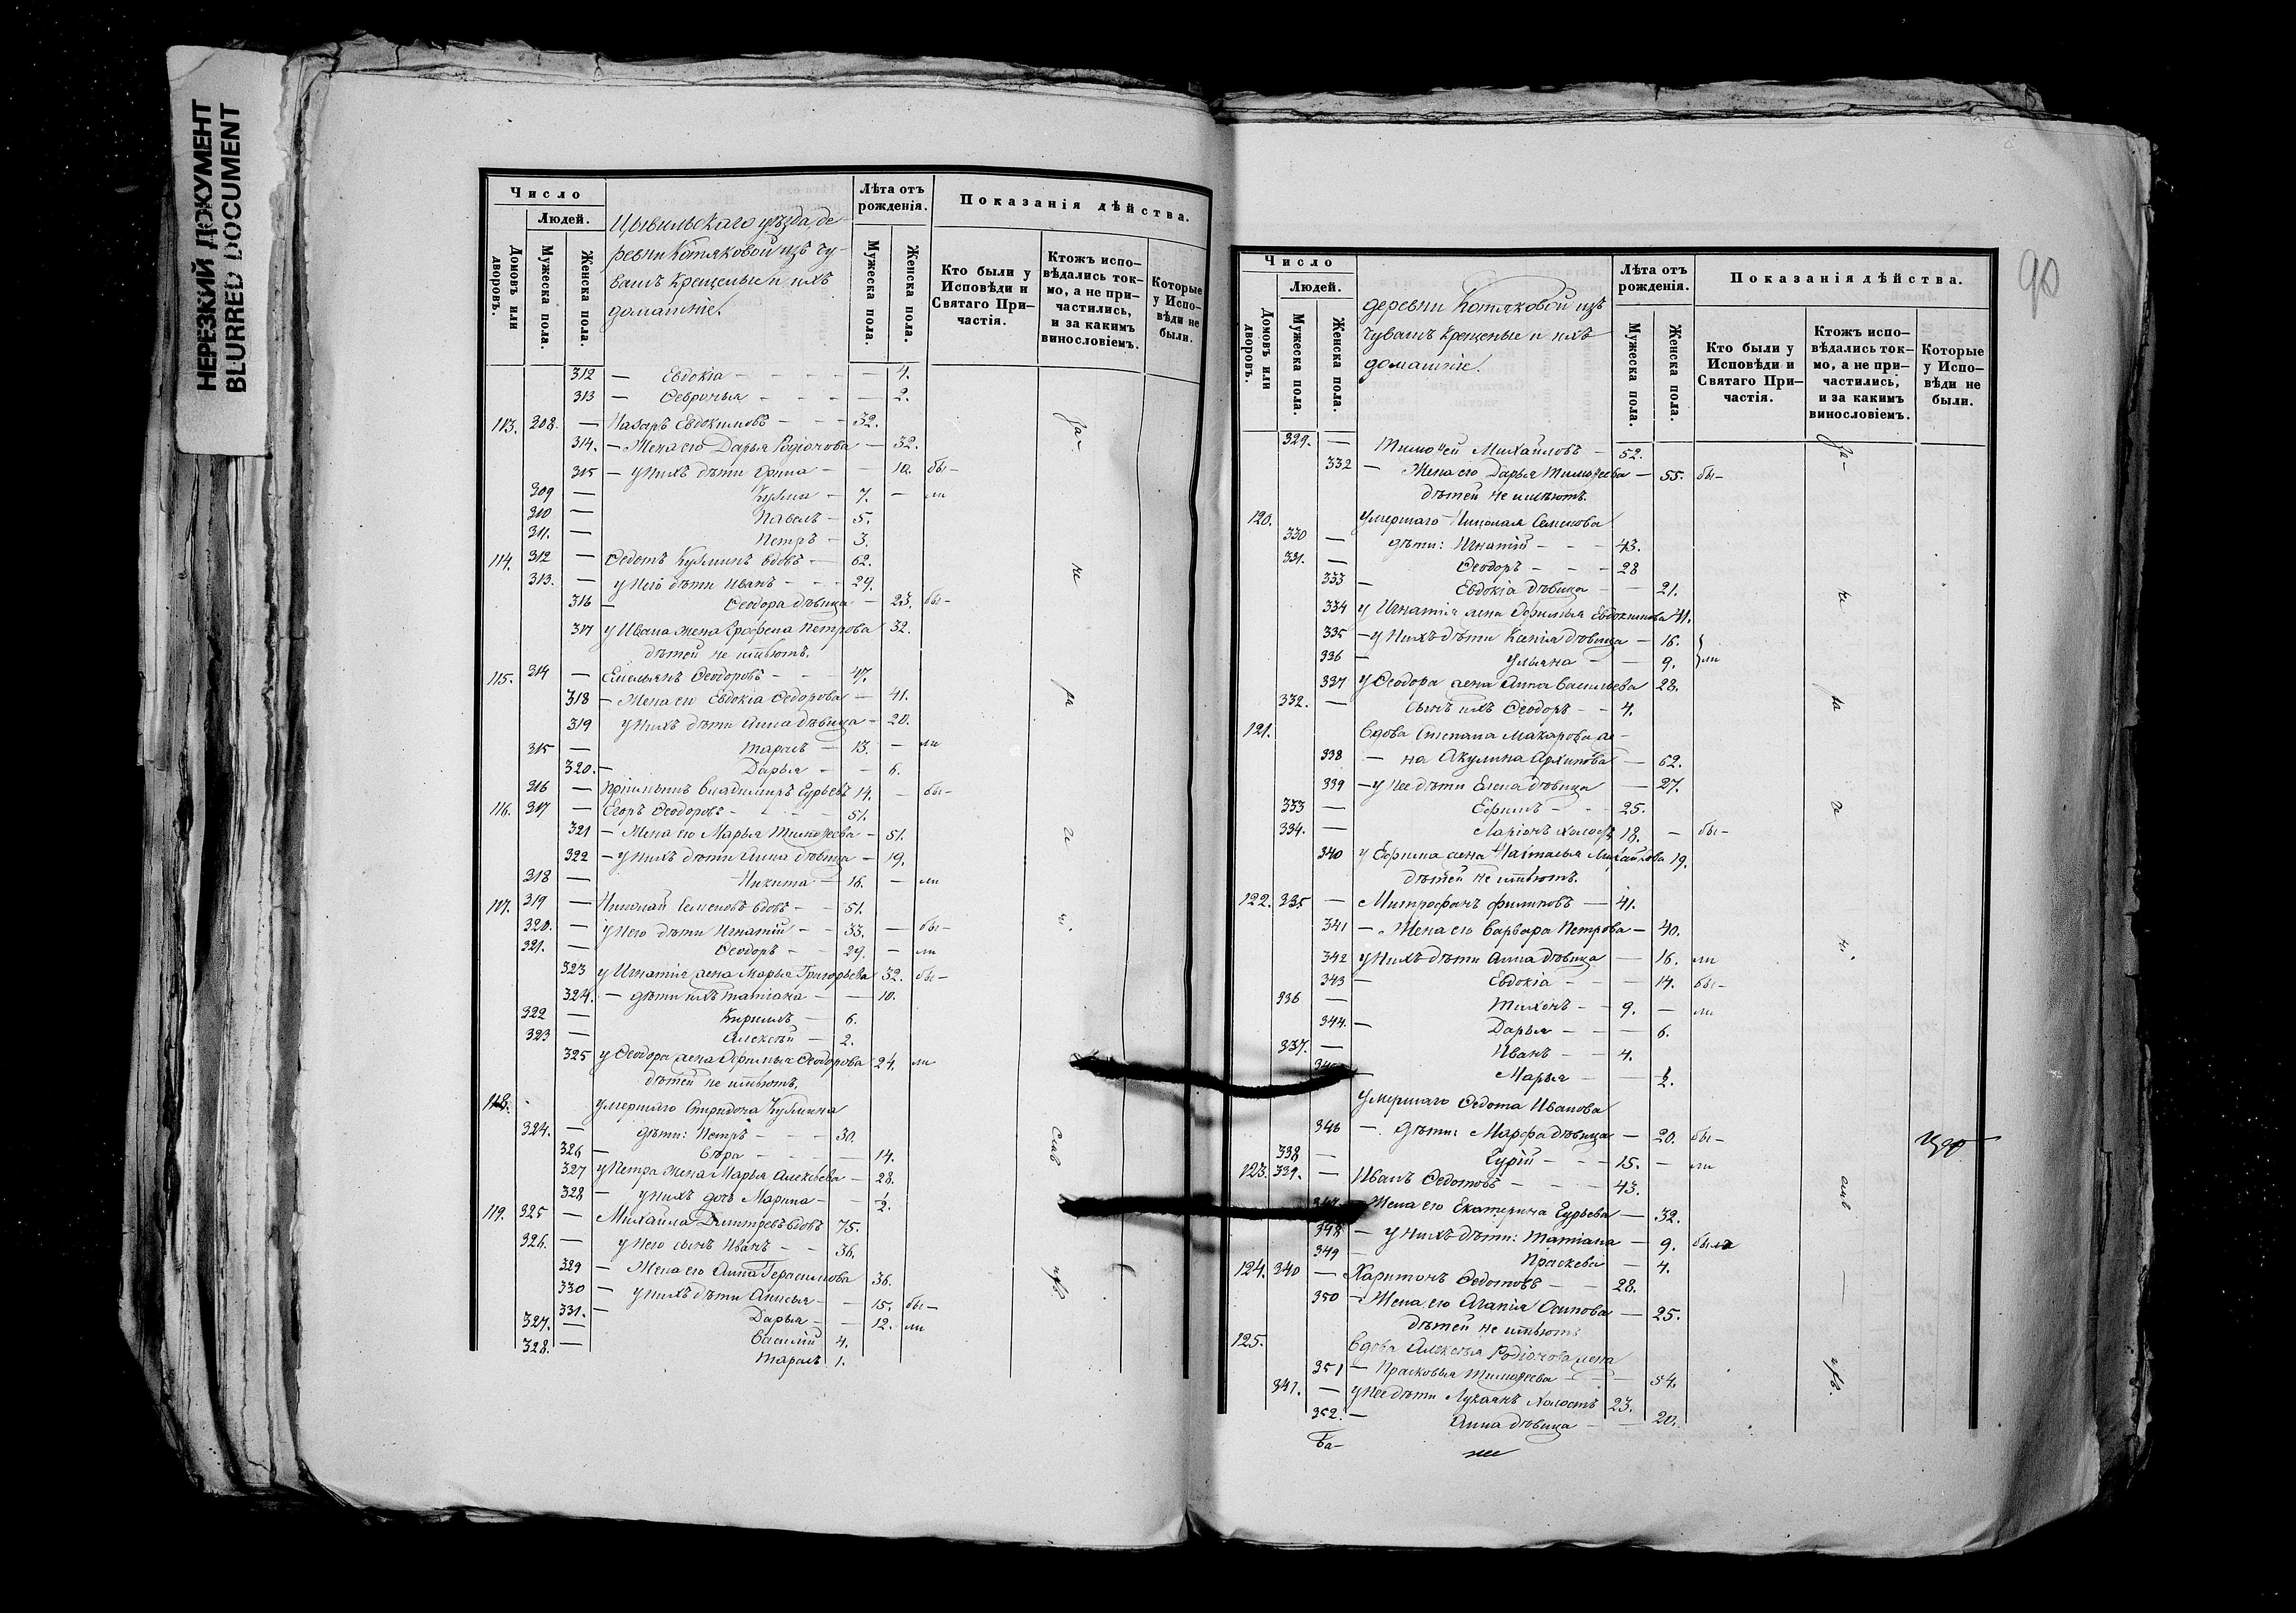 НЕРЕЗКИЙ ДОКУМЕНТ
BLURRED DOCUMENT
Число
Людей.
Домовъ или дворовъ.
Мужеска пола.
Женска пола.
Цывильскаго уѣзда, де-
ревни Котяковой изъ чу-
вашъ крещеные и ихъ
домашніе.
Лѣта отъ рожденія.
Мужеска пола.
Женска пола.
Показанія дѣйства.
Кто были у Исповѣди и Святаго При-частія.
Ктожъ испо-вѣдались ток-мо, а не при-частились, и за какимъ винословіемъ.
Которые у Испо-вѣди не были.
312 — Евдокіа — 4.
313 — Февронья — 2.
113. 208. — Назаръ Евдокимовъ — 32.
314. — Жена его Дарья Родіонова — 32.
315 — у нихъ дѣти Анна — 10. бы-
309 — Кузма — 7. — ли
310 — Павелъ — 5.
311. — Петръ — 3.
114. 312 — Ѳедотъ Кузминъ вдовъ — 62.
313. — у него дѣти Иванъ — 29.
316 — Ѳеодора дѣвица — 23. бы-
317 у Ивана жена Ерофена Петрова 32.
дѣтей не имѣютъ.
115. 314 — Емельянъ Ѳеодоровъ — 47.
318 — Жена его Евдокіа Ѳедорова — 41.
319 у нихъ дѣти Анна дѣвица — 20.
315 — Тарасъ — 13. — ли
320. — Дарья — 6.
316 — Пріимышъ Владимиръ Гурьевъ 14. — бы-
116. 317 — Егоръ Ѳеодоровъ — 51.
321 — Жена его Марья Тимоѳеева — 51.
322 — у нихъ дѣти Анна дѣвица — 19.
318 — Никита — 16. — ли
117. 319 — Николай Семеновъ вдовъ — 51.
320. — у него дѣти Игнатій — 33. — бы-
321. — Ѳеодоръ — 29. — ли
323 у Игнатія жена Марья Григорьева 32. бы-
324. — дѣти ихъ Татіана — 10.
322 — Кириллъ — 6.
323 — Алексѣй — 2.
325 у Ѳеодора жена Афимья Ѳеодорова 24. ли
дѣтей не имѣютъ.
118. Умершаго Спиридона Кузмина
324. — дѣти: Петръ — 30.
326 — Вѣра — 14.
327 у Петра жена Марья Алексѣева — 28.
328 — у нихъ дочь Марина — 1/2.
119. 325 — Михайла Димитревъ вдовъ 75.
326. — у него сынъ Иванъ — 36.
329 — Жена его Анна Герасимова 36.
330 — у нихъ дѣти Анисья — 15. бы-
331. — Дарья — 12. ли
327. — Василій 4.
328. — Тарасъ 1.
За
не
ра
де
ні
слав
Число
Людей.
Домовъ или дворовъ.
Мужеска пола.
Женска пола.
деревни Котяковой изъ
чувашъ крещеные и ихъ
домашніе.
Лѣта отъ рожденія.
Мужеска пола.
Женска пола.
Показанія дѣйства.
Кто были у Исповѣди и Святаго При-частія.
Ктожъ испо-вѣдались ток-мо, а не при-частились, и за какимъ винословіемъ.
Которые у Испо-вѣди не были.
90
329. — Тимоѳей Михайловъ — 52.
332 — Жена его Дарья Тимоѳеева — 55. бы-
дѣтей не имѣютъ.
120. Умершаго Николая Семенова
330 — дѣти: Игнатій — 43.
331. — Ѳеодоръ — 28
333 — Евдокіа дѣвица — 21.
334 у Игнатія жена Афимья Евдокимова 41.
335 — у нихъ дѣти Ксенія дѣвица — 16.
336 — Ульяна — 9. ли
337 у Ѳеодора жена Анна Васильева 28.
332. — сынъ ихъ Ѳеодоръ — 4.
121. Вдова Степана Макарова же-
338 — на Акулина Архипова — 62.
339 — у нее дѣти Елена дѣвица — 27.
333 — Ефимъ — 25.
334. — Ларіонъ холостъ 18. — бы-
340 у Ефима жена Наталья Михайлова 19.
дѣтей не имѣютъ.
122. 335 — Митрофанъ Филиповъ — 41.
341 — Жена его Варвара Петрова — 40.
342 у нихъ дѣти Анна дѣвица — 16. ли
343 — Евдокіа — 14. бы-
336 — Тихонъ — 9. — ли
344. — Дарья — 6.
337. — Иванъ — 4.
Марья — 1/2.
Умершаго Ѳедота Иванова
346 — дѣти: Марфа дѣвица — 20. бы-
338 — Гурій — 15. — ли
123. 339. — Иванъ Ѳедотовъ — 43.
347 Жена его Екатерина Гурьева — 32.
348 — у нихъ дѣти: Татіана — 9. была
349 — Праскева — 4.
124. 340 — Харитонъ Ѳедотовъ — 28.
350 — Жена его Агапія Осипова — 25.
дѣтей не имѣютъ
125. Вдова Алексѣя Родіонова жена
351 — Прасковья Тимоѳеева — 54.
341. — у нее дѣти Лукіанъ холостъ 23.
352. — Анна дѣвица — 20.
За-
не
ра
де
ні